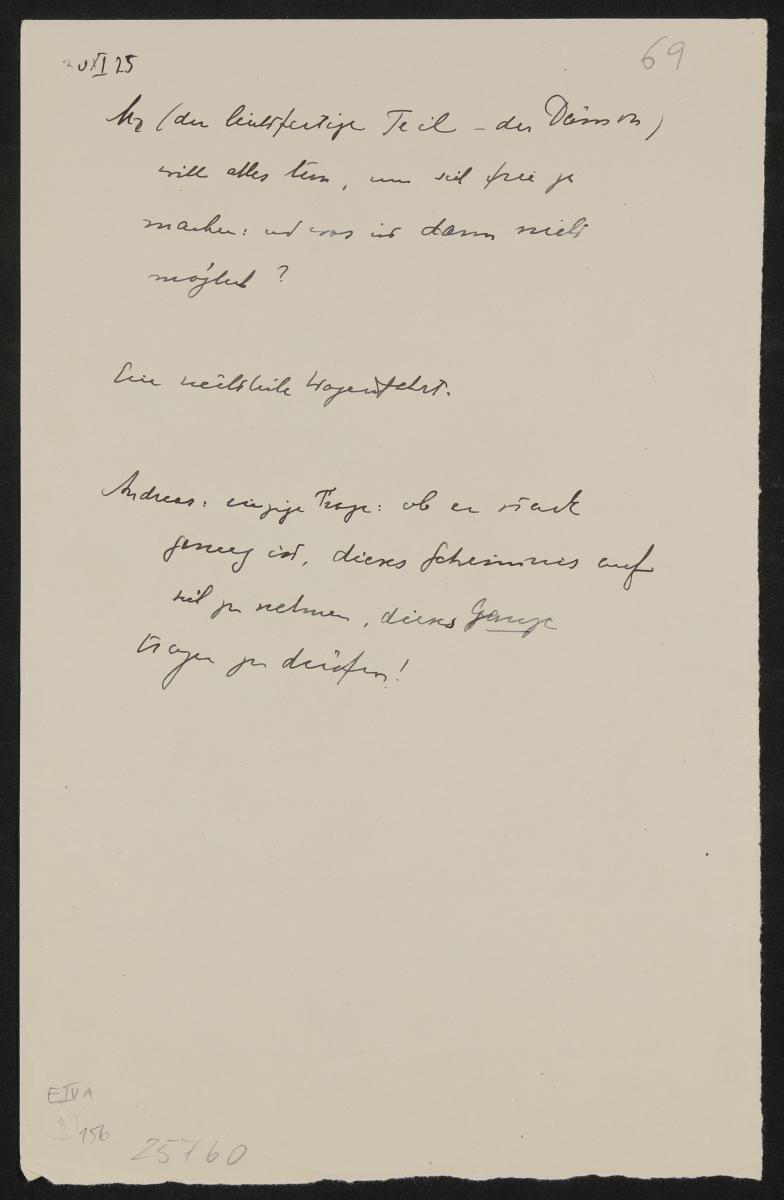 69
30 XI 25
M2 (der leichtfertige Teil – der Dämon)
will alles tun, um sich frei zu
machen: und was ist dann nicht
möglich?
Eine nächtliche Wagenfahrt.
Andreas: einzige Frage: ob er stark
genug ist, dieses Geheimnis auf
sich zu nehmen, dieses Ganze
tragen zu dürfen!
E IV A
3
156
25760